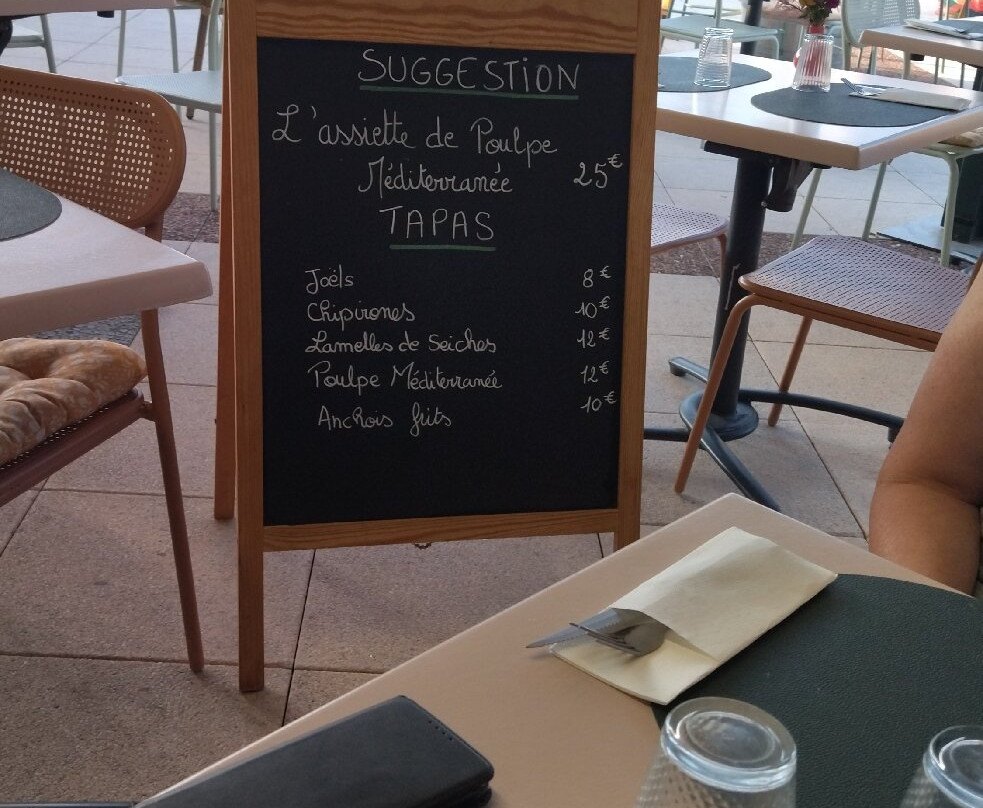 SUGGESTION
L'assiette de Poulpe
Méditerranée 25€
TAPAS
Joëls 8€
Chipirones 10€
Lamelles de Seiches 12€
Poulpe Méditerranée 12€
Anchois frits 10€